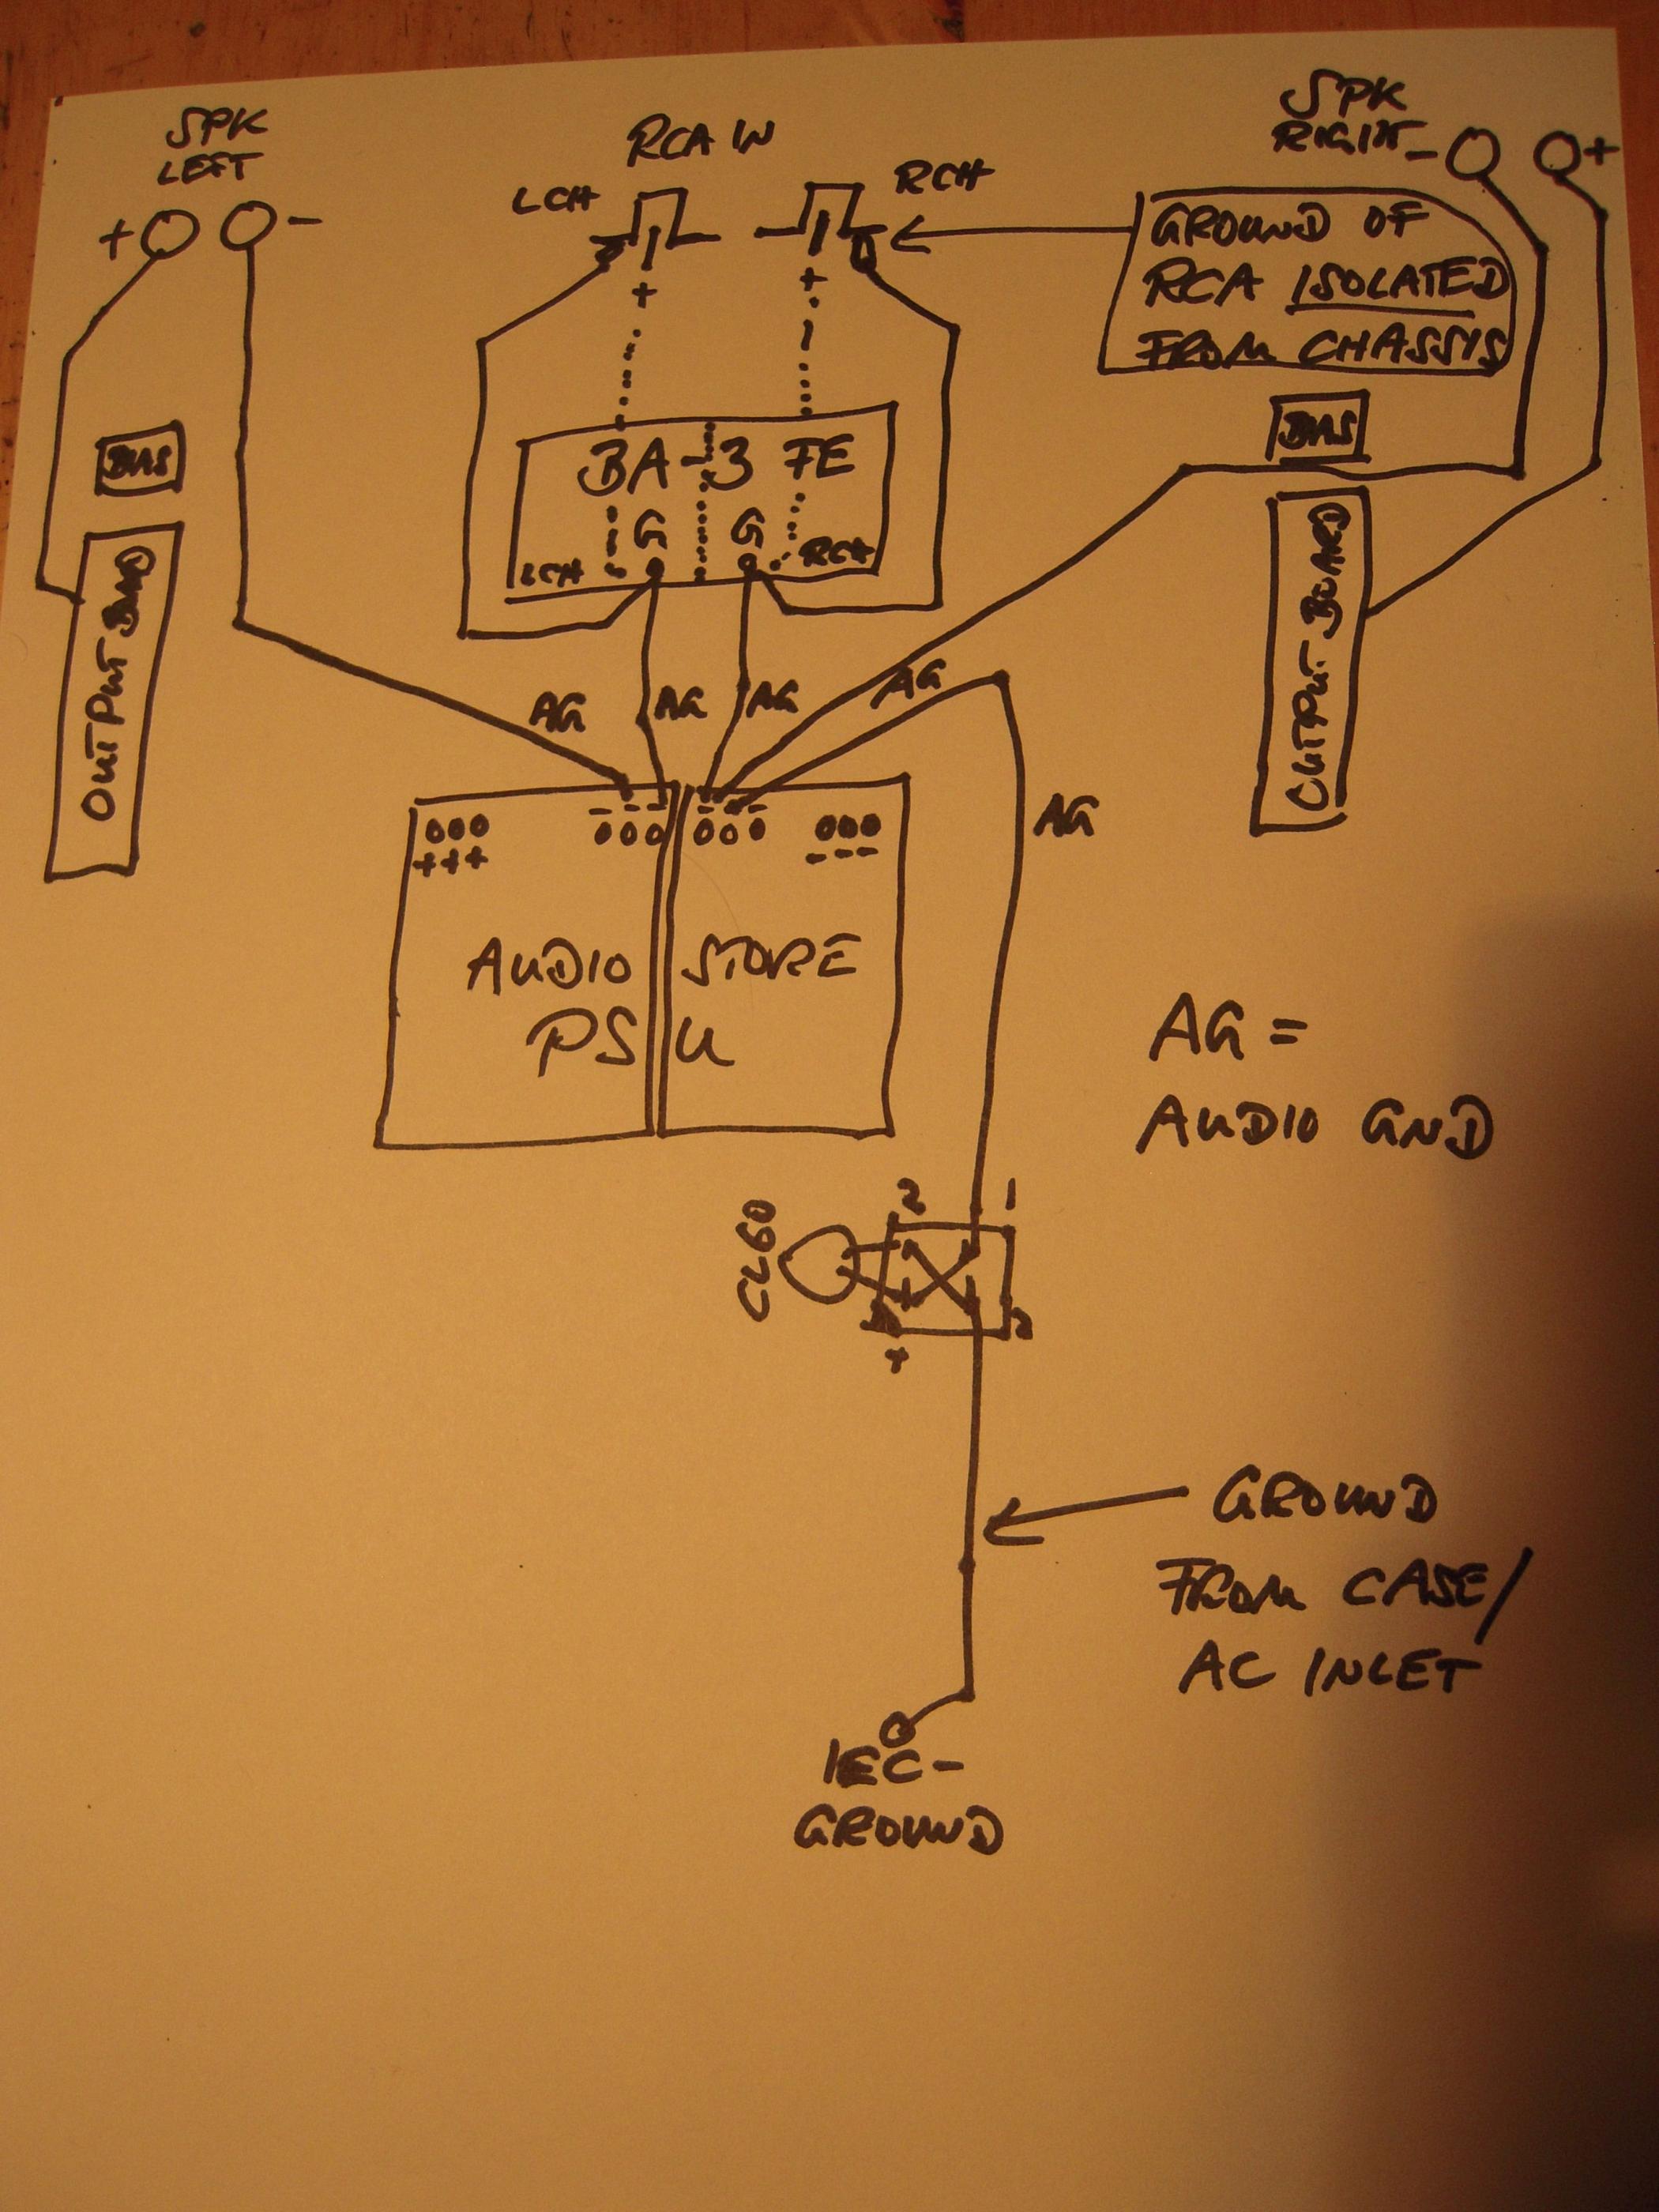 SPK
LEFT
+ -
RCA IN
LCH
RCH
+ +
SPK
RIGHT - +
GROUND OF
RCA ISOLATED
FROM CHASSYS
BIAS
BIAS
BA-3 FE
G G
LCH RCH
OUTPUT BOARD
OUTPUT BOARD
AG AG AG AG
AG
- - - - - -
000 000 000 000
+++ ---
AUDIO STORE
PSU
AG =
AUDIO GND
2 1
CL60
GROUND
FROM CASE/
AC INLET
IEC-
GROUND